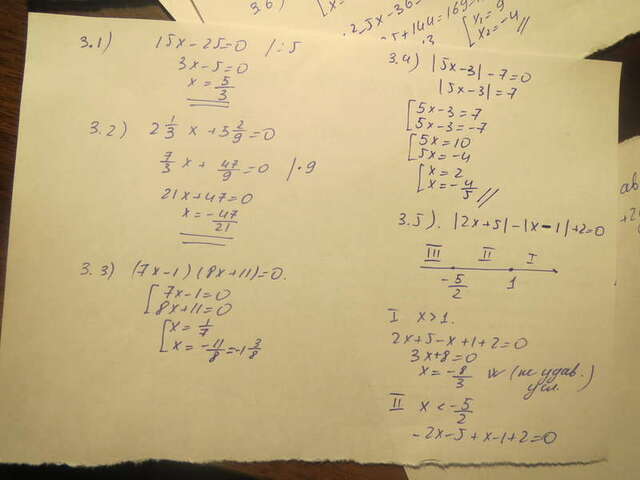 3.6)
x-36=
+144=169-
x₁=9
x₂=-4
3.1) 15x-25=0 |:5
3x-5=0
x=5/3
3.2) 2 1/3 x + 5 2/9 = 0
7/3 x + 47/9 = 0 |·9
21x+47=0
x=-47/21
3.3) (7x-1)(8x+11)=0.
[7x-1=0
8x+11=0
[x=1/7
x=-11/8=-1 3/8
3.4) |5x-3|-7=0
|5x-3|=7
[5x-3=7
5x-3=-7
[5x=10
5x=-4
[x=2
x=-4/5 //
3.5). |2x+5|-|x-1|+2=0
III II I
-5/2 1
I x>1.
2x+5-x+1+2=0
3x+8=0
x=-8/3 (не удов. усл.)
II x<-5/2
-2x-5+x-1+2=0